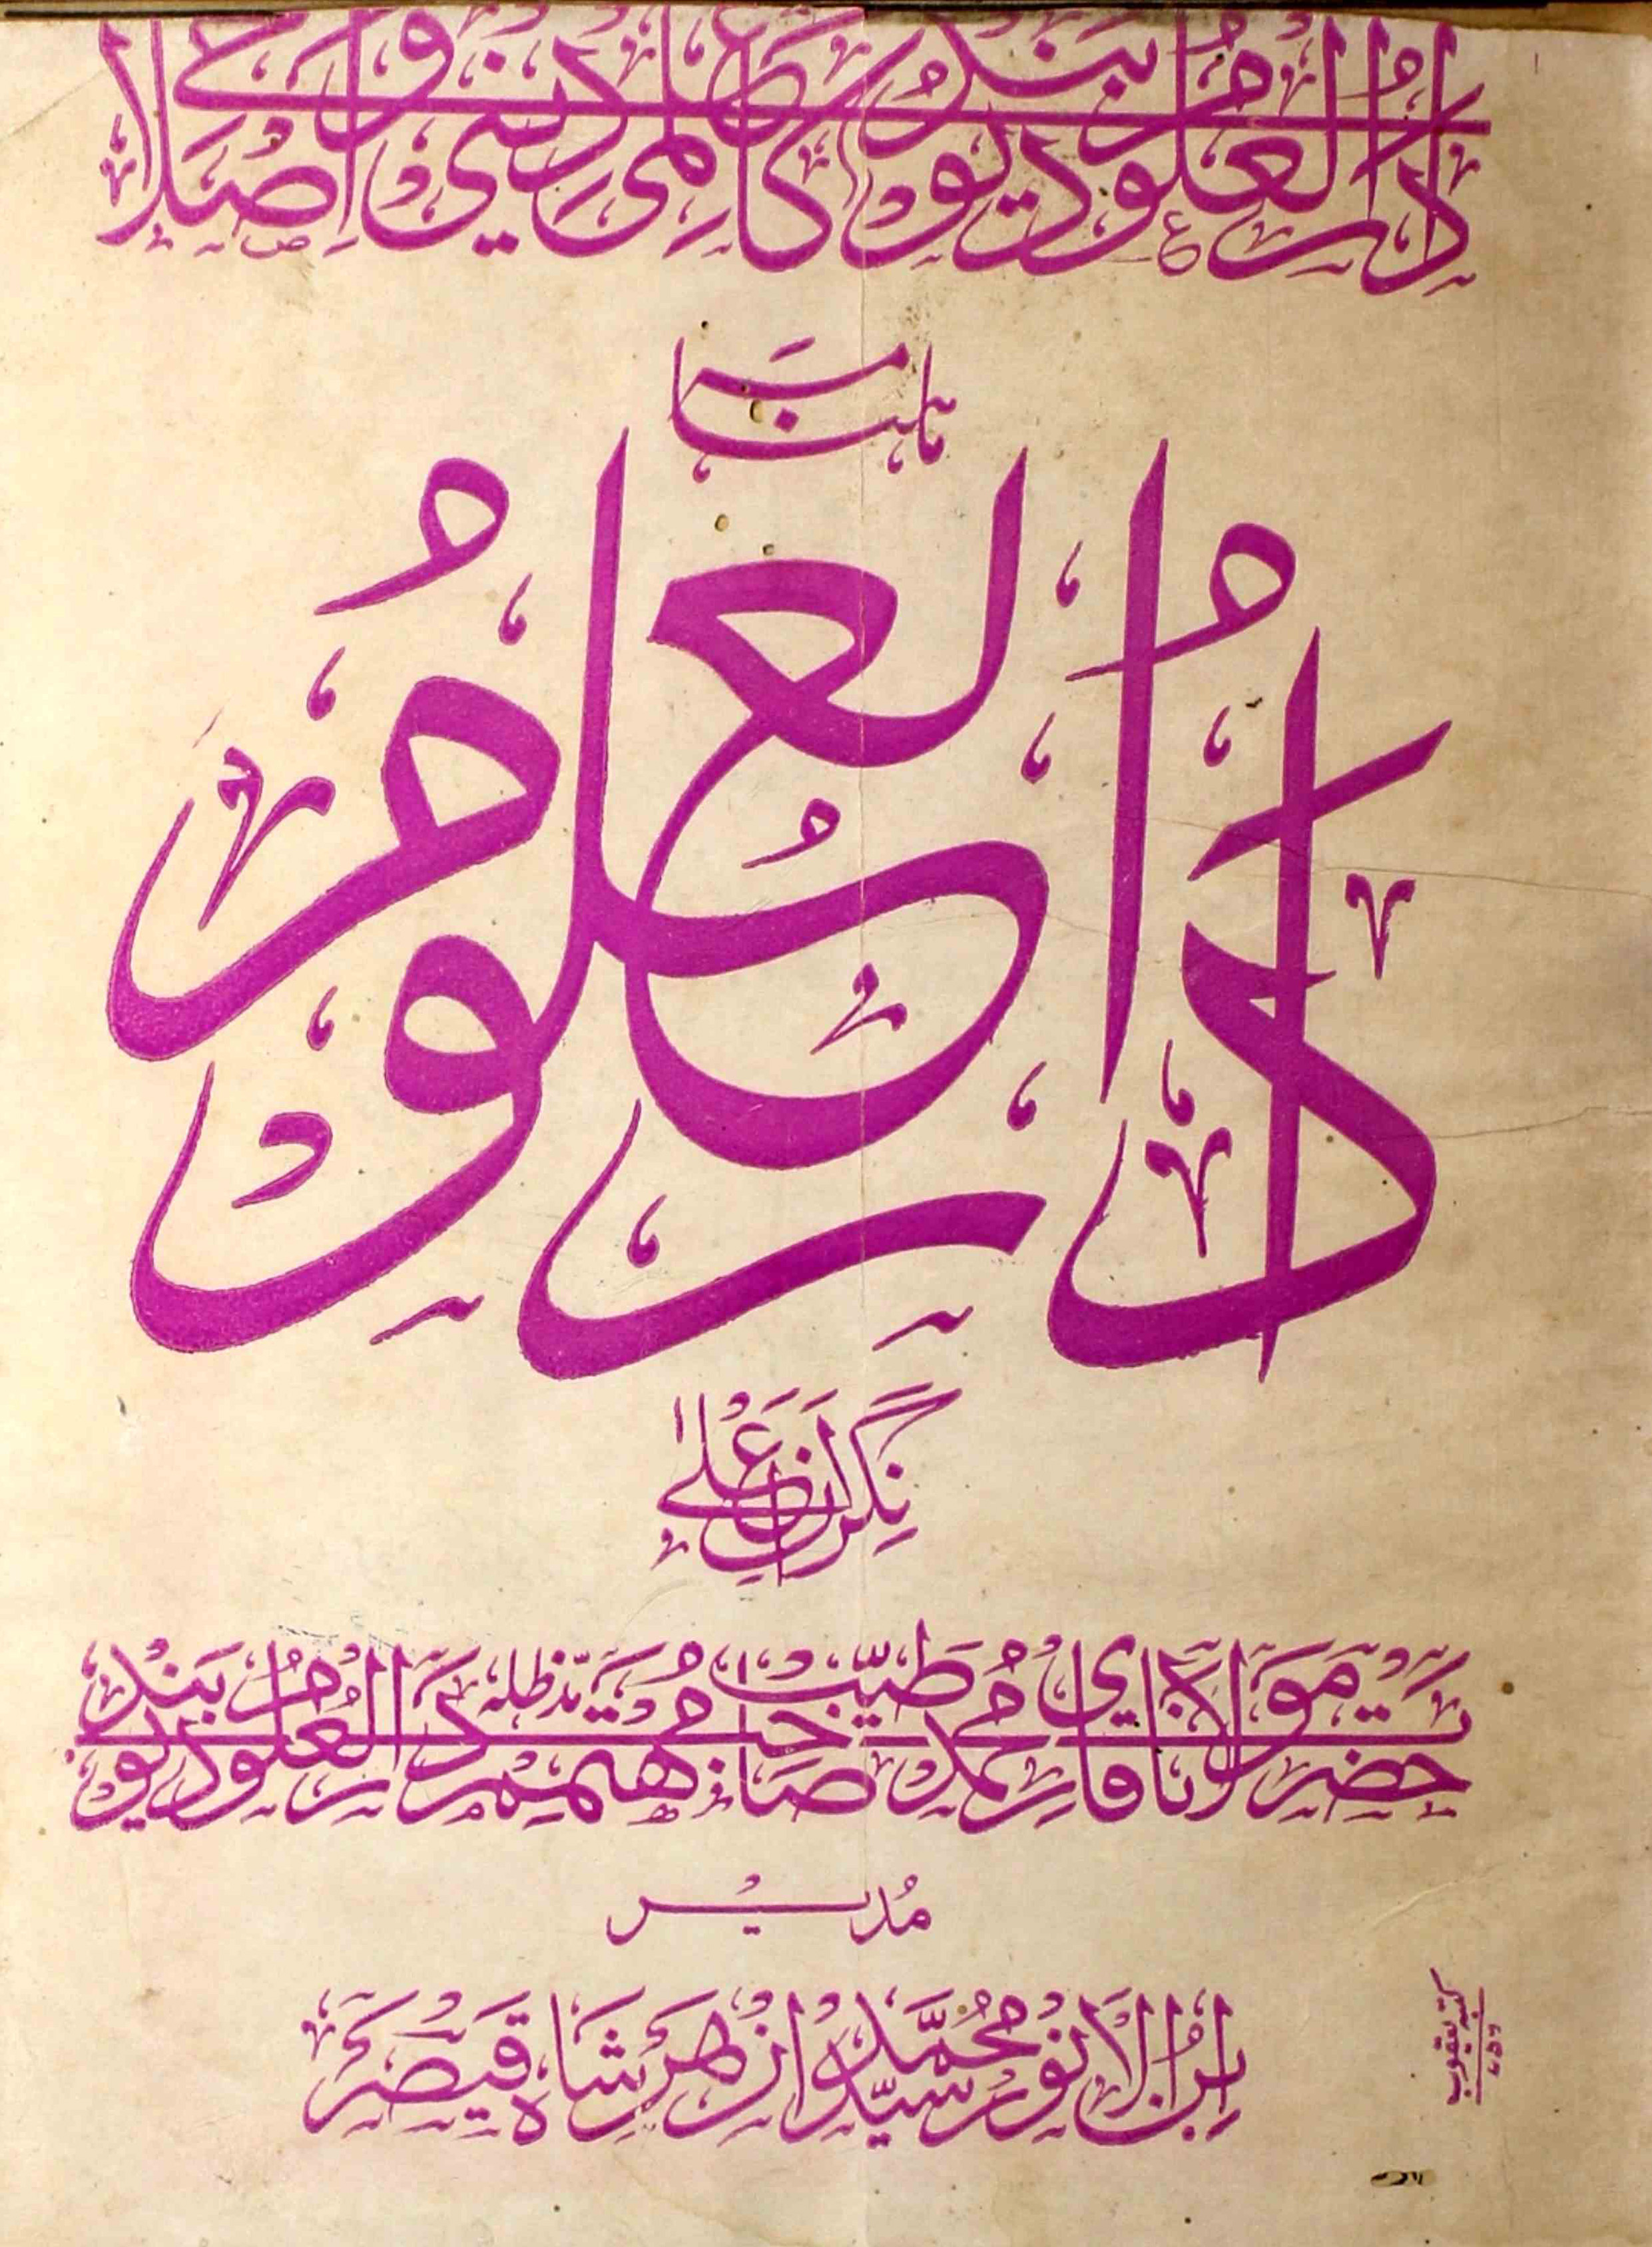 دارالعلوم دیوبند کا علمی دینی اور اصلاحی
ماہنامہ
دارالعلوم
نگران اعلیٰ
حضرت مولانا قاری محمد طیب صاحب مدظلہ مہتمم دارالعلوم دیوبند
مدیر
ابن الانور سید محمد ازہر شاہ قیصر
کتبہ یعقوب